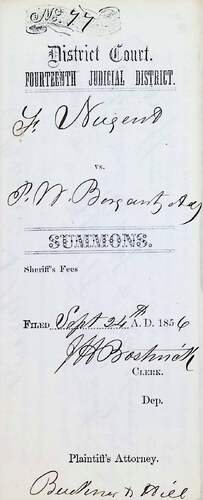 No. 77
District Court.
FOURTEENTH JUDICIAL DISTRICT.
Nugent
vs.
P. W.
SUMMONS.
Sheriff's Fees
FILED Sept 24th A. D. 1856
Bostwick
CLERK.
Dep.
Plaintiff's Attorney.
Buckner &